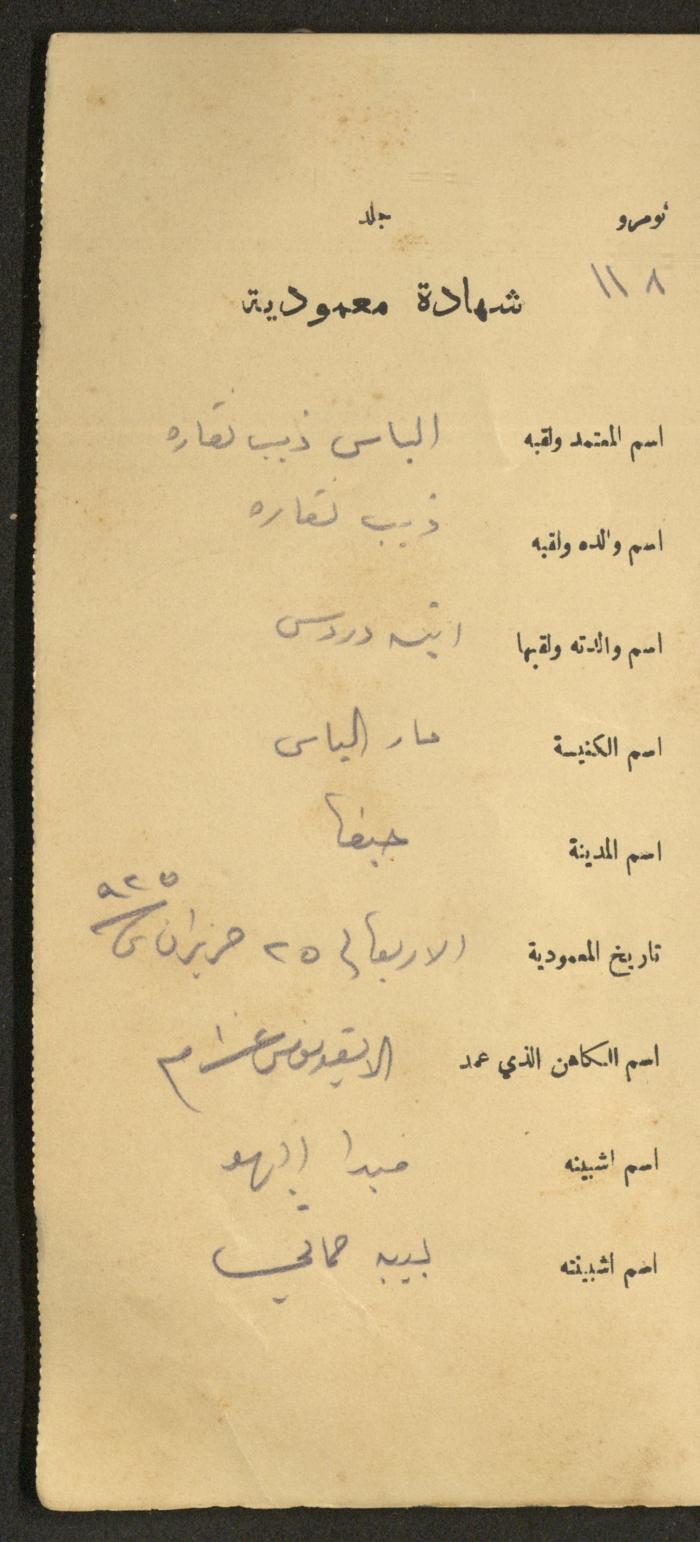 نومرو جلد
١١٨
شهادة معمودية
اسم المعتمد ولقبه الياس ذيب نقاره
اسم والده ولقبه ذيب نقاره
اسم والدته ولقبها
اسم الكنيسة مار الياس
اسم المدينة حيفا
تاريخ المعمودية الاربعا في ٢٥ حزيران ٩٢٥
اسم الكاهن الذي عمد
اسم اشبينه
اسم اشبينته لبيبه